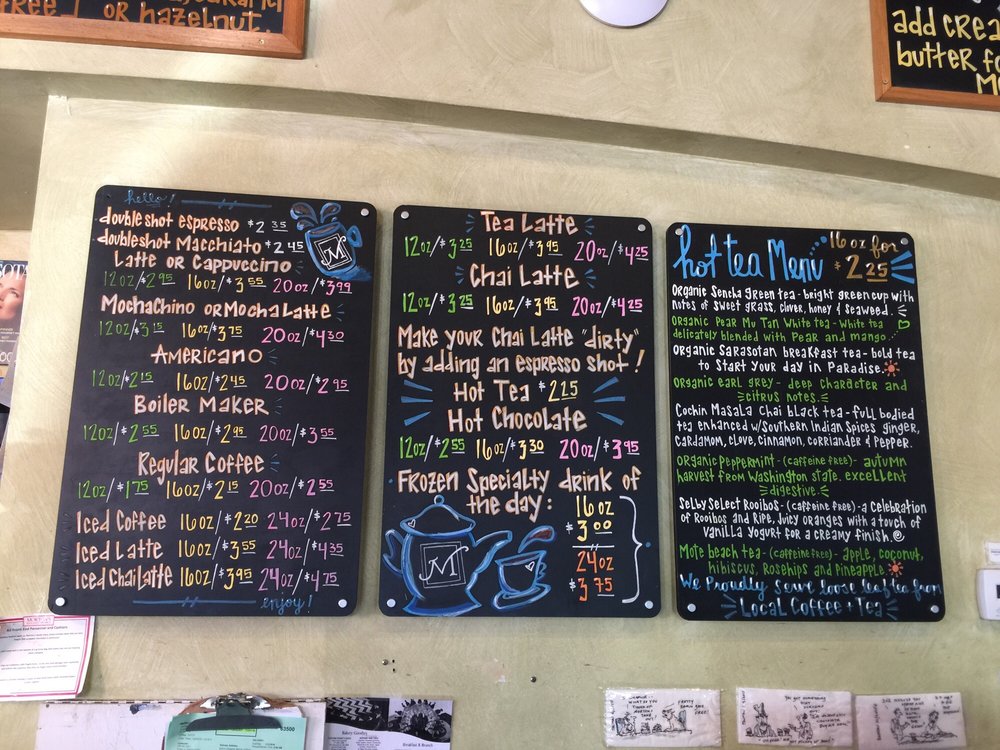 free) or hazelnut.
add crea
butter fo
hello!
doubleshot espresso $2.35
doubleshot Macchiato $2.45
Latte or Cappuccino
12oz/$2.95 16oz/$3.55 20oz/$3.99
MochaChino or Mocha Latte
12oz/$3.15 16oz/$3.75 20oz/$4.30
Americano
12oz/$2.15 16oz/$2.45 20oz/$2.95
Boiler Maker
12oz/$2.55 16oz/$2.95 20oz/$3.55
Regular Coffee
12oz/$1.75 16oz/$2.15 20oz/$2.55
Iced Coffee 16oz/$2.20 24oz/$2.75
Iced Latte 16oz/$3.55 24oz/$4.35
Iced Chai Latte 16oz/$3.95 24oz/$4.75
enjoy!
M
Tea Latte
12oz/$3.25 16oz/$3.95 20oz/$4.25
Chai Latte
12oz/$3.25 16oz/$3.95 20oz/$4.25
Make your Chai Latte "dirty"
by adding an espresso shot!
Hot Tea $2.25
Hot Chocolate
12oz/$2.55 16oz/$3.30 20oz/$3.95
Frozen Specialty drink of
the day:
16oz
$3.00
24oz
$3.75
M
hot tea Menu 16oz for
$2.25
Organic Sencha green tea - bright green cup with
notes of sweet grass, clover, honey & seaweed.
Organic Pear Mu Tan White tea - White tea
delicately blended with Pear and mango.
Organic Sarasotan breakfast tea - bold tea
to Start your day in Paradise.
Organic earl grey - deep character and
citrus notes.
Cochin Masala Chai black tea - full bodied
tea enhanced w/Southern Indian Spices ginger,
cardamom, clove, cinnamon, corriander & pepper.
Organic Peppermint - (caffeine free) - autumn
harvest from Washington state. excellent
digestive.
Selby Select Rooibos - (caffeine free) - a celebration
of Rooibos and Ripe, Juicy oranges with a touch of
vanilla yogurt for a creamy finish.
Mote beach tea - (caffeine free) - apple, coconut,
hibiscus, Rosehips and Pineapple.
We Proudly Serve loose leaf tea from
Local Coffee + Tea